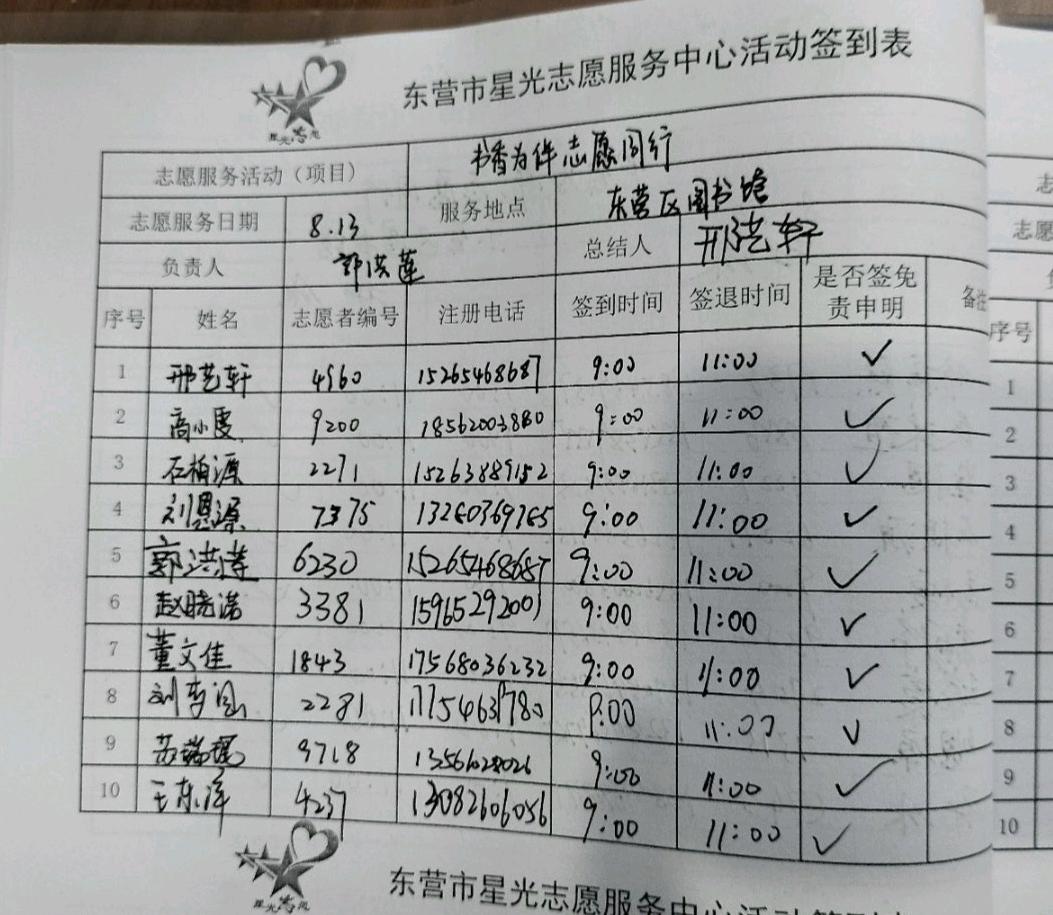 东营市星光志愿服务中心活动签到表
星光志愿
志愿服务活动（项目） 书香为伴志愿同行
志愿服务日期 8.13 服务地点 东营区图书馆
负责人 郭洪莲 总结人 邢艺轩
序号 姓名 志愿者编号 注册电话 签到时间 签退时间 是否签免责申明 备注
1 邢艺轩 4960 15265468687 9:00 11:00 ✓
2 高小雯 9200 18562003880 9:00 11:00 ✓
3 石柏源 2271 15263889152 9:00 11:00 ✓
4 刘恩源 7375 13280369765 9:00 11:00 ✓
5 郭洪莲 6230 15265468687 9:00 11:00 ✓
6 赵晓 3381 15965292001 9:00 11:00 ✓
7 董文佳 1843 17568036232 9:00 11:00 ✓
8 刘 2281 9:00 11:00 ✓
9 苏 9718 13561028026 9:00 11:00 ✓
10 王东洋 4237 13082606056 9:00 11:00 ✓
星光志愿
东营市星光志愿服务中心活动签到表
志
志愿
序号
1
2
3
4
5
6
7
8
9
10